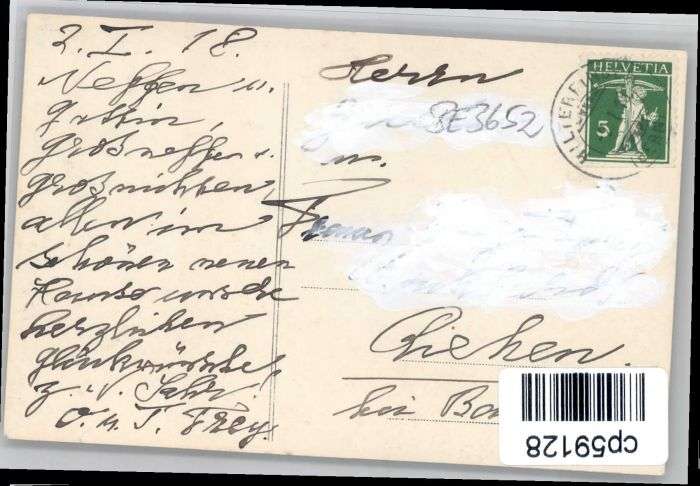 2. I. 18.
Neffen u.
Gattin,
Großneffen u.
Großnichten,
allen im
schönen neuen
Hause unsre
herzlichen
Glückwünsche
z. n. Jahr.
O. u. T. Frey.
Herrn
BE3652
u.
Riehen.
bei
HELVETIA
5
HILTERFI
cp59128